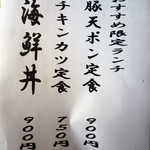 おすすめ限定ランチ
豚天ポン定食 900円
チキンカツ定食 750円
海鮮丼 900円